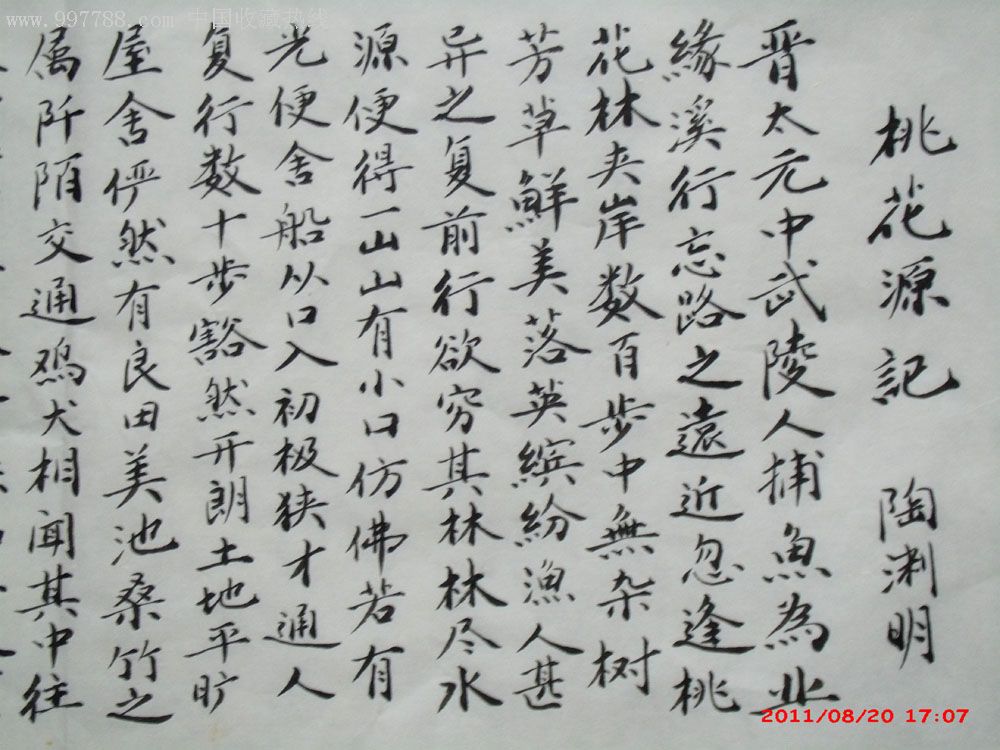 www.997788.com 中国收藏热线
桃花源記 陶渊明
晋太元中武陵人捕魚為业
緣溪行忘路之遠近忽逢桃
花林夹岸数百步中無杂树
芳草鮮美落英缤紛漁人甚
异之复前行欲穷其林林尽水
源便得一山山有小口仿佛若有
光便舍船从口入初极狭才通人
复行数十步豁然开朗土地平旷
屋舍俨然有良田美池桑竹之
属阡陌交通鸡犬相闻其中往
2011/08/20 17:07